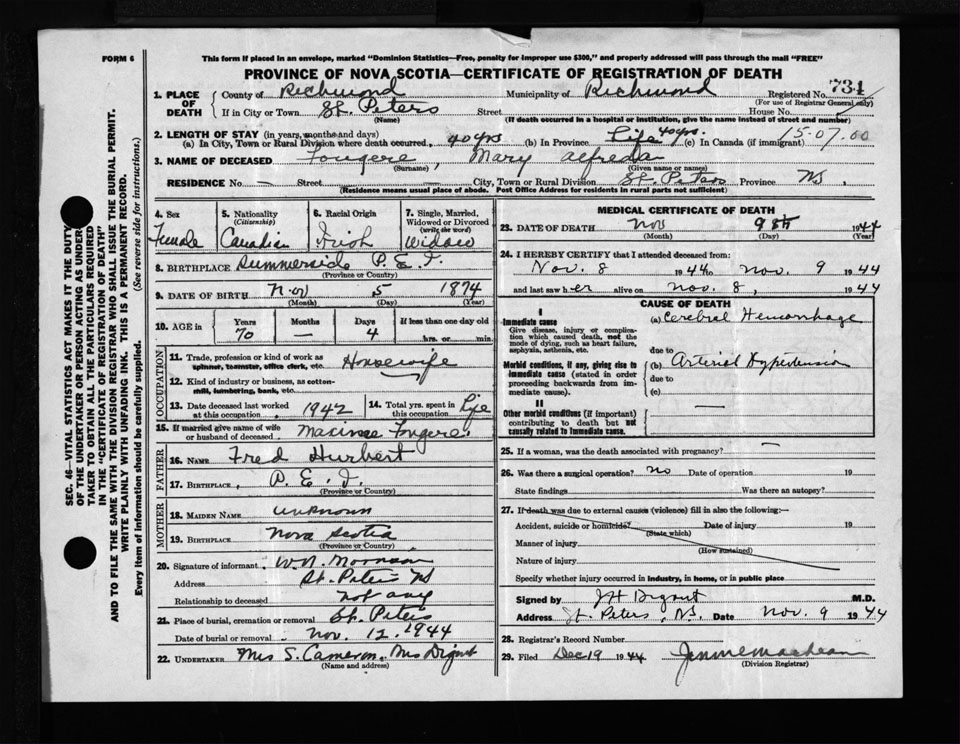 FORM 6
This form if placed in an envelope, marked "Dominion Statistics—Free, penalty for improper use $300," and properly addressed will pass through the mail "FREE"
PROVINCE OF NOVA SCOTIA—CERTIFICATE OF REGISTRATION OF DEATH
SEC. 46—VITAL STATISTICS ACT MAKES IT THE DUTY
OF THE UNDERTAKER OR PERSON ACTING AS UNDERTAKER
TO OBTAIN ALL THE PARTICULARS REQUIRED
IN THE "CERTIFICATE OF REGISTRATION OF DEATH"
AND TO FILE THE SAME WITH THE DIVISION REGISTRAR WHO SHALL ISSUE THE BURIAL PERMIT.
WRITE PLAINLY WITH UNFADING INK. THIS IS A PERMANENT RECORD.
Every item of information should be carefully supplied. (See reverse side for instructions.)
1. PLACE OF DEATH County of Richmond Municipality of Richmond Registered No. 734
(For use of Registrar General only)
If in City or Town St. Peters Street House No.
(Name) (If death occurred in a hospital or institution, give the name instead of street and number)
2. LENGTH OF STAY (in years, months and days)
(a) In City, Town or Rural Division where death occurred, 40 yrs (b) In Province Life 40 yrs. (c) In Canada (if immigrant) 15.07.00
3. NAME OF DECEASED Fougere, Mary Alfreda
(Surname) (Given name or names)
RESIDENCE No. — Street — City, Town or Rural Division St. Peters Province NS.
(Residence means usual place of abode. Post Office Address for residents in rural parts not sufficient)
4. Sex Female
5. Nationality (Citizenship) Canadian
6. Racial Origin Irish
7. Single, Married, Widowed or Divorced (write the word) Widow
8. BIRTHPLACE Summerside P.E.I.
(Province or Country)
9. DATE OF BIRTH Nov 5 1874
(Month) (Day) (Year)
10. AGE in Years 70 Months — Days 4 If less than one day old hrs. or min.
OCCUPATION
11. Trade, profession or kind of work as spinner, teamster, office clerk, etc. Housewife
12. Kind of industry or business, as cotton-mill, lumbering, bank, etc.
13. Date deceased last worked at this occupation 1942
14. Total yrs. spent in this occupation Life
15. If married give name of wife or husband of deceased Fougere
FATHER
16. NAME Fred Hurbert
17. BIRTHPLACE. P.E.I.
(Province or Country)
MOTHER
18. MAIDEN NAME unknown
19. BIRTHPLACE Nova Scotia
(Province or Country)
20. Signature of informant W.N. Morrison
Address St. Peters NS
Relationship to deceased not any
21. Place of burial, cremation or removal St. Peters
Date of burial or removal Nov. 12. 1944
22. UNDERTAKER Mrs S. Cameron. Mrs Digout
(Name and address)
MEDICAL CERTIFICATE OF DEATH
23. DATE OF DEATH Nov 9th 1944
(Month) (Day) (Year)
24. I HEREBY CERTIFY that I attended deceased from:
Nov. 8 1944 to Nov. 9 1944
and last saw her alive on Nov. 8, 1944
CAUSE OF DEATH
I
Immediate cause
Give disease, injury or complication which caused death, not the mode of dying, such as heart failure, asphyxia, asthenia, etc.
(a) Cerebral Hemorrhage
due to
Morbid conditions, if any, giving rise to immediate cause (stated in order proceeding backwards from immediate cause).
(b) Arterial Hypertension
due to
(c)
II
Other morbid conditions (if important) contributing to death but not causally related to immediate cause.
25. If a woman, was the death associated with pregnancy? —
26. Was there a surgical operation? no Date of operation 19
State findings Was there an autopsy?
27. If death was due to external causes (violence) fill in also the following:—
Accident, suicide or homicide? Date of injury 19
(State which)
Manner of injury
(How sustained)
Nature of injury
Specify whether injury occurred in industry, in home, or in public place
Signed by JH Digout M.D.
Address St. Peters, N.S. Date Nov. 9 1944
28. Registrar's Record Number
29. Filed Dec 19 1944
(Division Registrar)